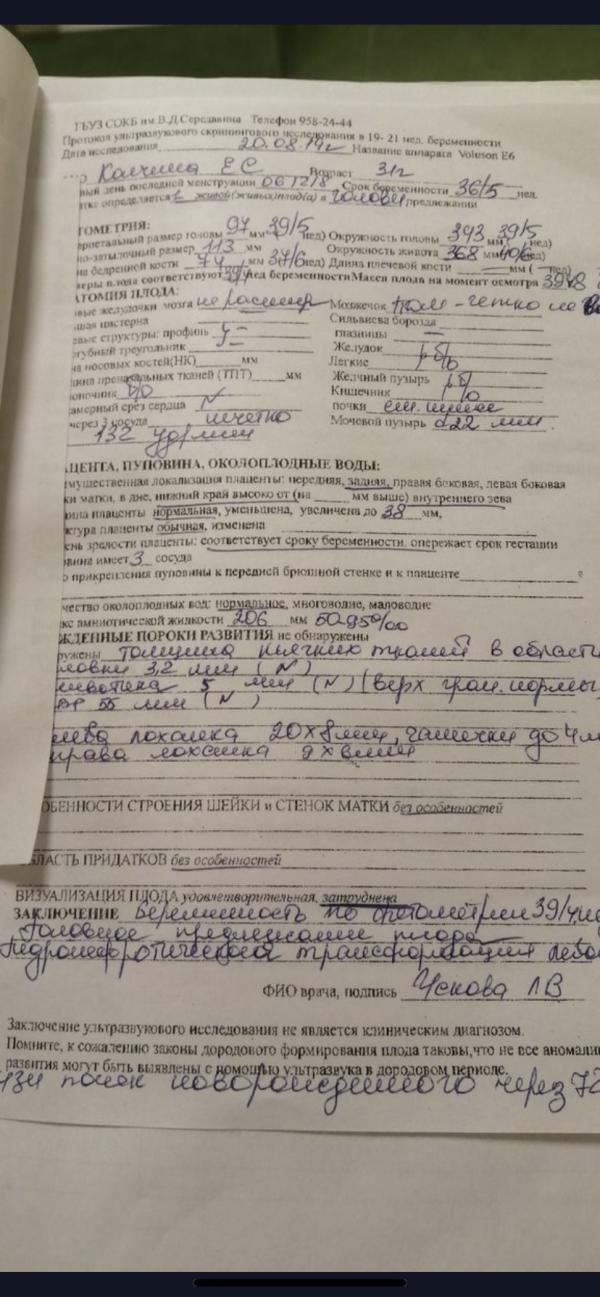 ГБУЗ СОКБ им.В.Д.Середавина Телефон 958-24-44
Протокол ультразвукового скринингового исследования в 19- 21 нед. беременности
Дата исследования 20.08.19г Название аппарата Voluson E6
Е С Возраст 31г
ный день последней менструации 061218 Срок беременности 36/5 нед.
определяется 1 живой(живых)плод(а) в головн предлежании
ТОМЕТРИЯ:
париетальный размер головы 97 мм 39/5 нед) Окружность головы 343 мм 39/5 нед)
но-затылочный размер 113 мм Окружность живота 368 мм 40/6 нед)
на бедренной кости 74 мм 37/6 нед) Длина плечевой кости — мм ( нед)
еры плода соответствуют 39/4 нед беременности Масса плода на момент осмотра
АТОМИЯ ПЛОДА:
овые желудочки мозга не расшир Мозжечок
шая цистерна Сильвиева борозда
евые структуры: профиль глазницы —
губный треугольник Желудок
на носовых костей(НК) мм Легкие б/о
щина преназальных тканей (ТПТ) мм Желчный пузырь
оночник б/о Кишечник
камерный срез сердца N почки см. ниже
через 3 сосуда нечетко Мочевой пузырь d 22 мм.
132 уд/мин
ЦЕНТА, ПУПОВИНА, ОКОЛОПЛОДНЫЕ ВОДЫ:
мущественная локализация плаценты: передняя, задняя, правая боковая, левая боковая
ки матки, в дне, нижний край высоко от (на мм выше) внутреннего зева
ина плаценты нормальная, уменьшена, увеличена до 38 мм,
ктура плаценты обычная, изменена
ень зрелости плаценты: соответствует сроку беременности, опережает срок гестации
овина имеет 3 сосуда
о прикрепления пуповины к передней брюшной стенке и к плаценте
чество околоплодных вод: нормальное, многоводие, маловодие
кс амниотической жидкости 206 мм 50-95%
ЖДЕННЫЕ ПОРОКИ РАЗВИТИЯ не обнаружены
ружены толщина мягких тканей в области
ловки 3,2 мм (N)
животика 5 мм (N) (верх гран. нормы
55 мм (N)
лева лоханка 20х8мм, чашечки до 4м
права лоханка 9х8мм
ОБЕННОСТИ СТРОЕНИЯ ШЕЙКИ и СТЕНОК МАТКИ без особенностей
БЛАСТЬ ПРИДАТКОВ без особенностей
ВИЗУАЛИЗАЦИЯ ПЛОДА удовлетворительная, затруднена
ЗАКЛЮЧЕНИЕ Беременность по фетометрии 39/4не
Головное предлежание плода
Гидронефротическая трансформация лево
ФИО врача, подпись Ускова ЛВ
Заключение ультразвукового исследования не является клиническим диагнозом.
Помните, к сожалению законы дородового формирования плода таковы,что не все аномали
развития могут быть выявлены с помощью ультразвука в дородовом периоде.
УЗИ почек новорожденного через 72